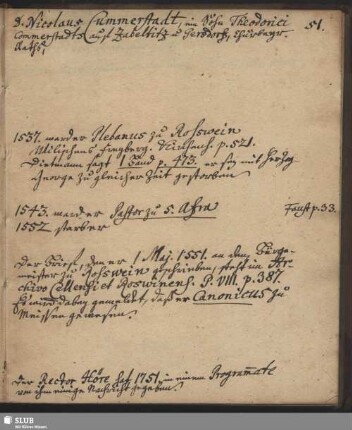 3. Nicolaus Cummerstadt, ein Sohn Theodorici 51.
Commerstadts auf Zabeltitz u. Churfürstl.
Raths,
1537. warder Plebanus zu Rosswein
p. 521.
Dietmann sagt 1 Band p. 473. er sey mit Herzog
George zu gleicher Zeit gestorben
1543. warder Pastor zu S. Afra Faust p. 33.
1552. starber
Der Brief, den er 1 Maj. 1551. an den Bürge-
meister zu Rosswein geschrieben, steht im Ar-
chivo Cellensi et Roswinensi P. VIII. p. 387.
Es wird dabey gemeldet, daß er Canonicus zu
Meissen gewesen.
Der Rector Höre hat 1751. in einem Programmate
von ihm einige Nachricht gegeben.
SLUB
Wir führen Wissen.